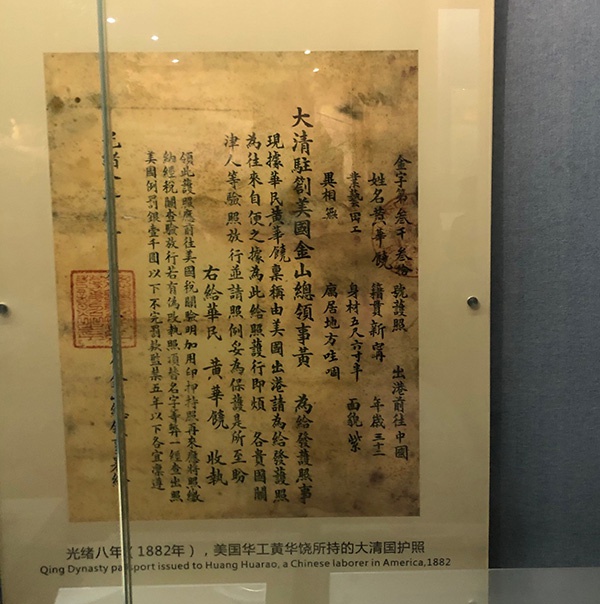 金字第叁千叁拾 號護照 出港前往中國
姓名黃華饒 籍貫新甯 年歲三十一
業藝田工 身材五尺六寸半 面貌紫
異相無 寓居地方哇啯
大清駐劄美國金山總領事黃 為給發護照事
現據華民黃華饒稟稱由美國出港請為給發護照
為往來自便之據為此給照護行即煩 各貴國關
津人等驗照放行並請照例妥為保護是所至盼
右給華民 黃華饒 收執
領此護照應前往美國稅關驗明加用印押持照再來應將照繳
納經稅關查驗放行若有偽改執照頂替名字等弊一經查出照
美國例罰銀壹千圓以下不完罰款監禁五年以下各宜凛遵
光緒八年（1882年），美国华工黄华饶所持的大清国护照
Qing Dynasty passport issued to Huang Huarao, a Chinese laborer in America,1882